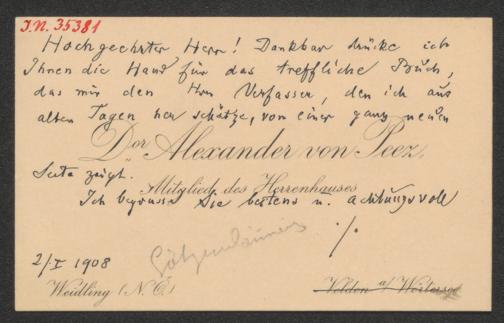 I.N. 35381
Hochgeehrter Herr! Dankbar drücke ich
Ihnen die Hand für das treffliche Buch,
das mir den Hrn Verfasser, den ich aus
alten Tagen her schätze, von einer ganz neuen
Dor Alexander von Peez,
Seite zeigt.
Mitglied des Herrenhauses
Ich begrüsse Sie bestens u. achtungsvoll
./.
2/I 1908
Weidling (N.Ö.)
Velden a/ Wörtersee